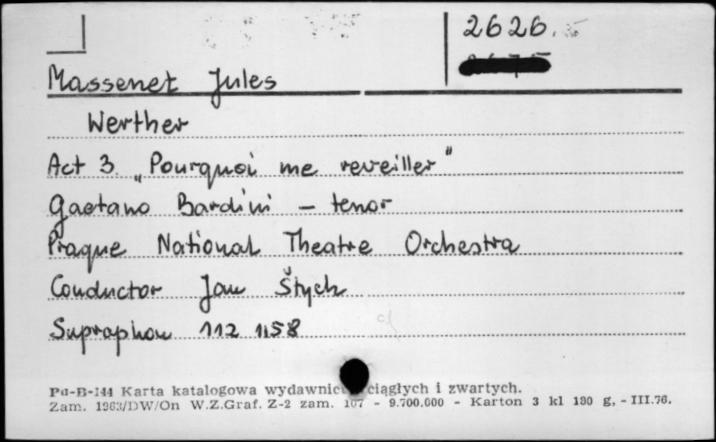 2626.
Massenet Jules
Werther
Act 3. „Pourquoi me reveiller"
Gaetano Bardini – tenor
Prague National Theatre Orchestra
Conductor Jan Štych
Supraphon 112 1158
Pu-B-144 Karta katalogowa wydawnic ciągłych i zwartych.
Zam. 1963/DW/On W.Z.Graf. Z-2 zam. 107 - 9.700.000 - Karton 3 kl 180 g, - III.76.